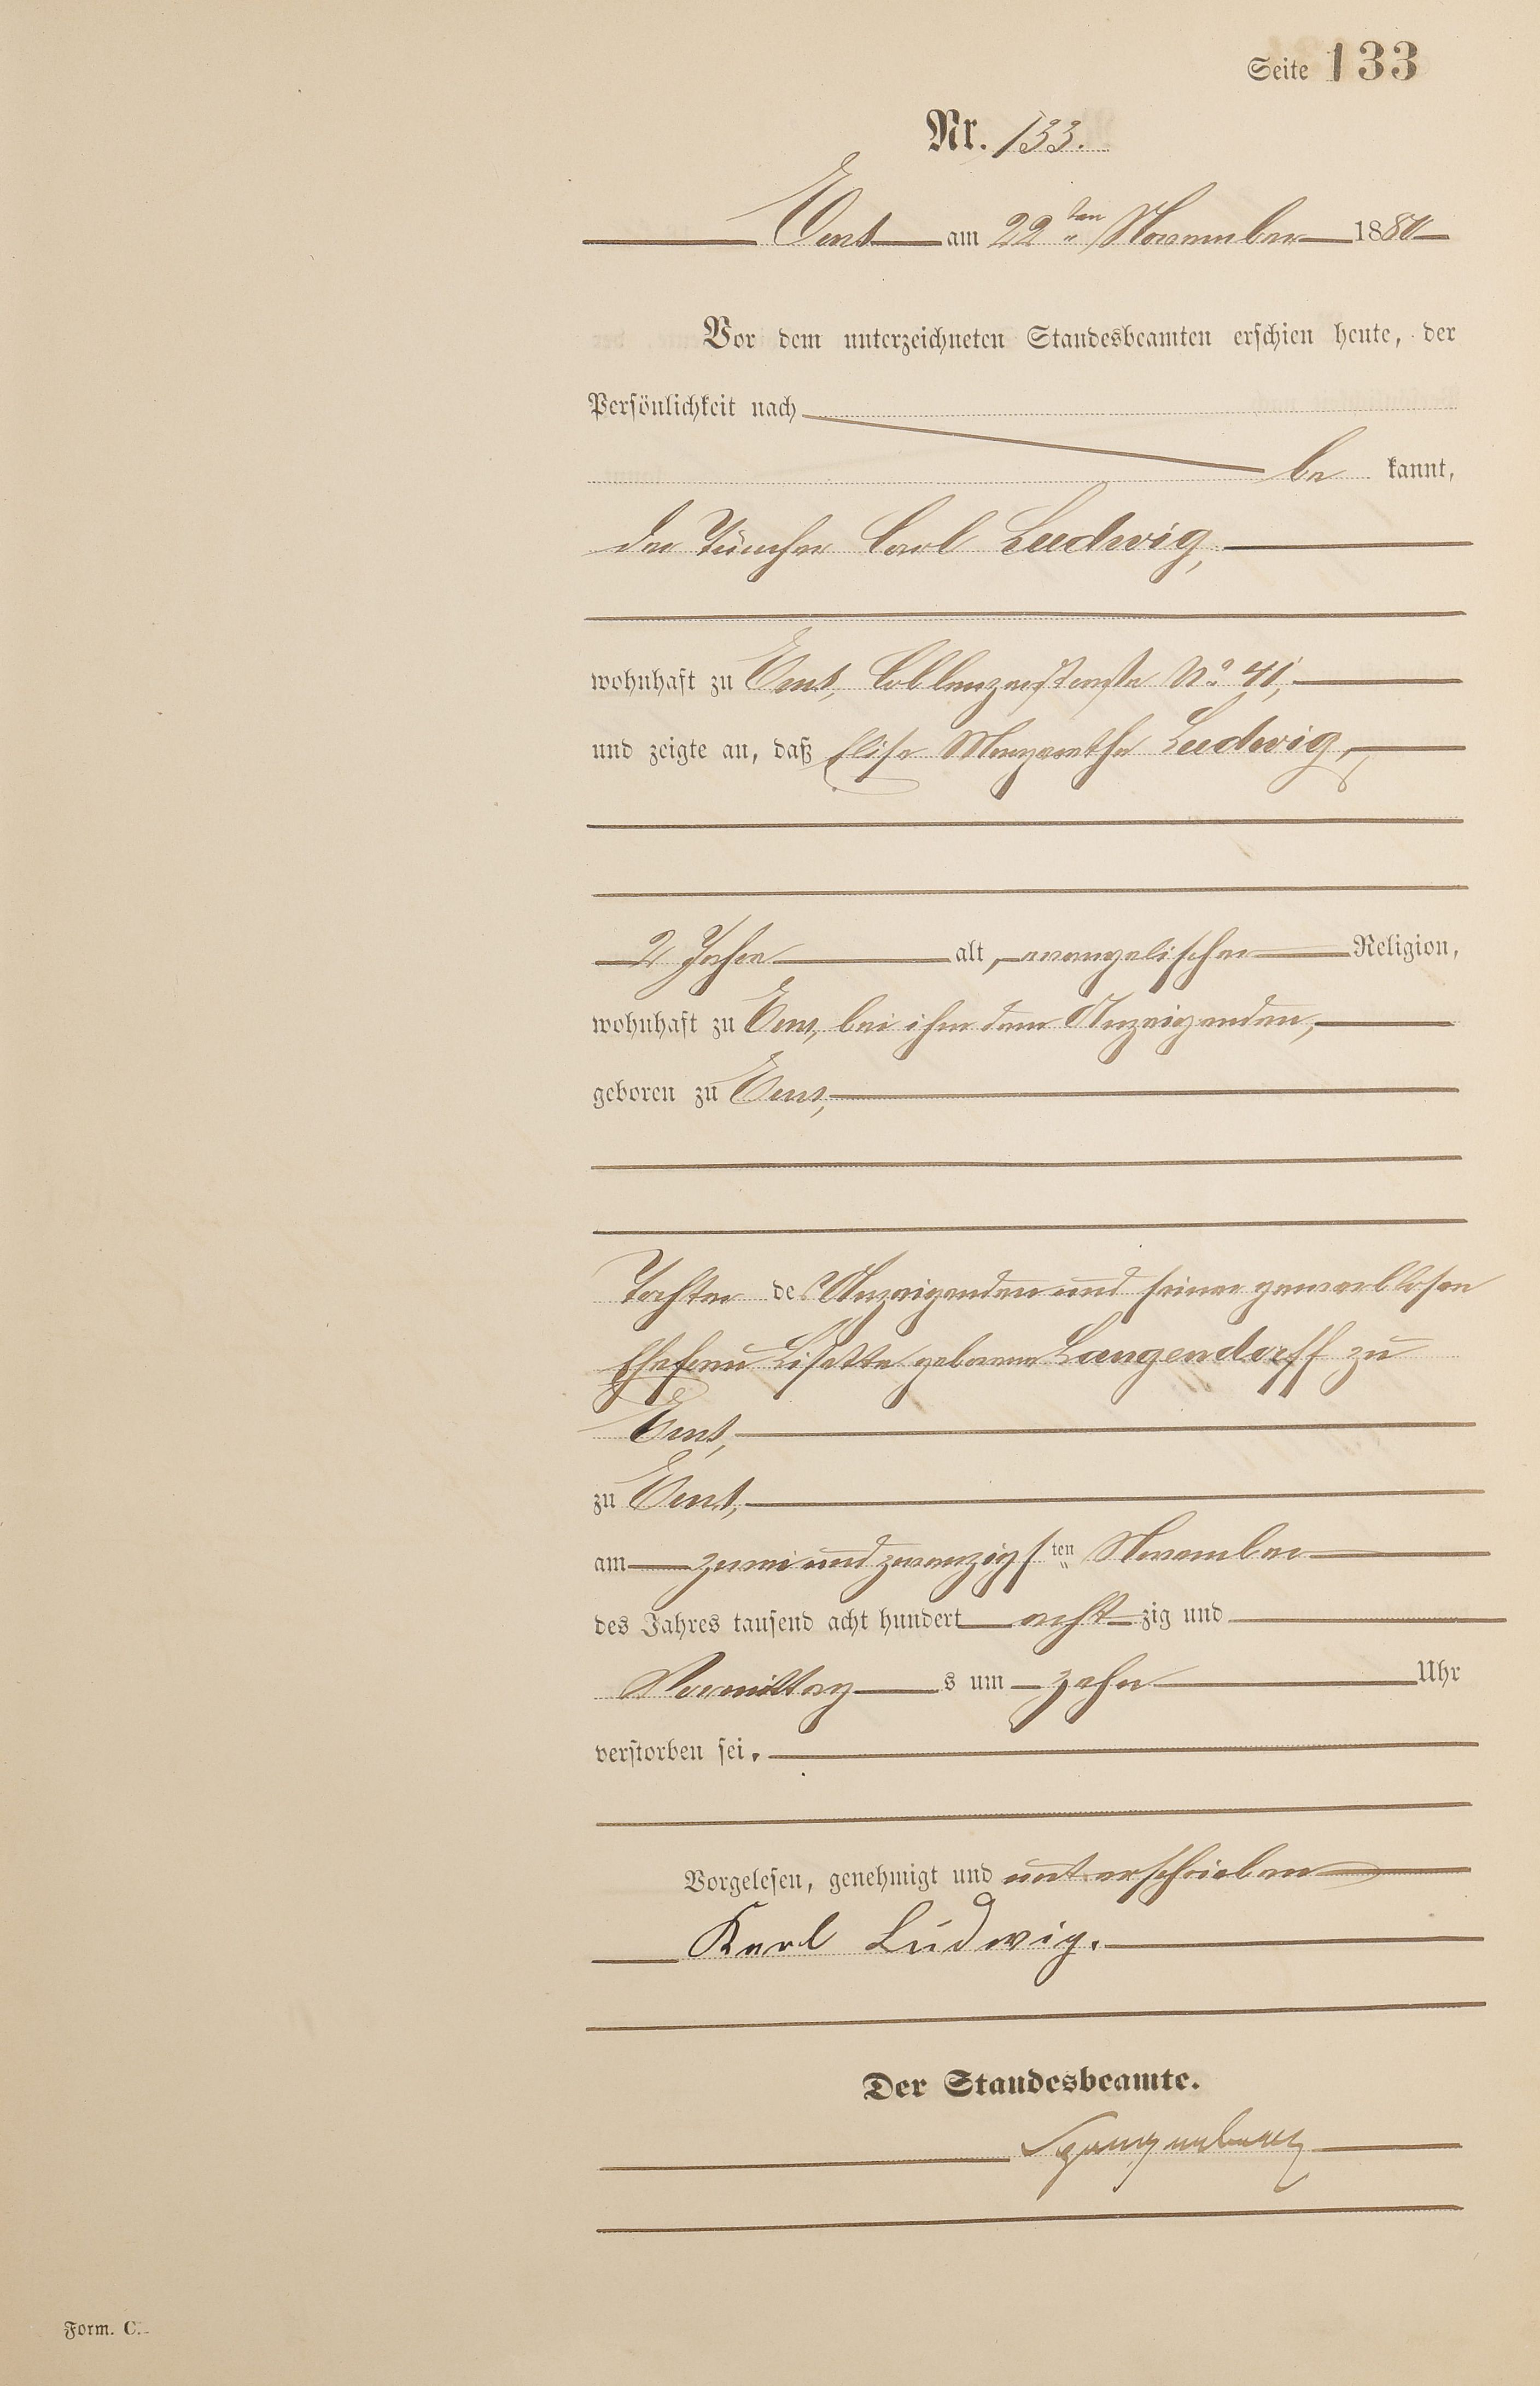 Seite 133
Nr. 133.
Ems am 22ten November 1880
Vor dem unterzeichneten Standesbeamten erschien heute, der
Persönlichkeit nach
be kannt,
der Tüncher Carl Ludwig,
wohnhaft zu Ems, Coblenzerstraße No 41,
und zeigte an, daß Elise Margarethe Ludwig,
2 Jahre alt, evangelischer Religion,
wohnhaft zu Ems, bei ihm dem Anzeigenden,
geboren zu Ems,
Tochter des Anzeigenden und seiner gewerblosen
Ehefrau Lisette geborene Langendorff zu
Ems,
zu Ems,
am zwei und zwanzigsten November
des Jahres tausend acht hundert acht zig und
Vormittag s um zehn Uhr
verstorben sei.
Vorgelesen, genehmigt und unterschrieben
Karl Ludwig.
Der Standesbeamte.
Spangenberg
Form. C.